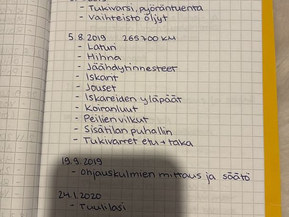 - Tukivarsi, pyöräntuenta
- Vaihteisto öljyt
5.8.2019 265700 KM
- Laturi
- Hihna
- Jäähdytinnesteet
- Iskarit
- Jouset
- Iskareiden yläpäät
- Koiranluut
- Peilien vilkut
- Sisätilan puhallin
- Tukivarret etu + taka
19.9.2019
- Ohjauskulmien mittaus ja säätö
24.1.2020
- Tuulilasi